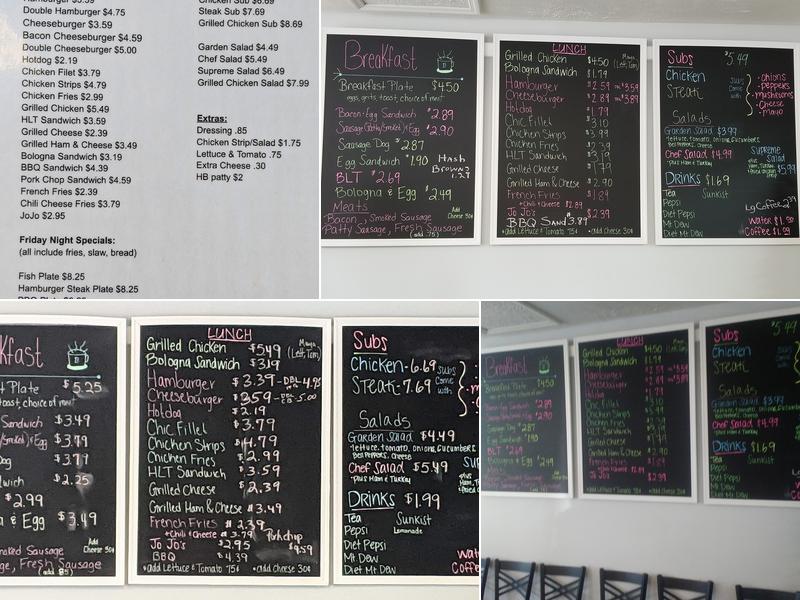 Hamburger $3.59
Double Hamburger $4.75
Cheeseburger $3.59
Bacon Cheeseburger $4.59
Double Cheeseburger $5.00
Hotdog $2.19
Chicken Filet $3.79
Chicken Strips $4.79
Chicken Fries $2.99
Grilled Chicken $5.49
HLT Sandwich $3.59
Grilled Cheese $2.39
Grilled Ham & Cheese $3.49
Bologna Sandwich $3.19
BBQ Sandwich $4.39
Pork Chop Sandwich $4.59
French Fries $2.39
Chili Cheese Fries $3.79
JoJo $2.95
Friday Night Specials:
(all include fries, slaw, bread)
Fish Plate $8.25
Hamburger Steak Plate $8.25
Chicken Sub $6.69
Steak Sub $7.69
Grilled Chicken Sub $8.69
Garden Salad $4.49
Chef Salad $5.49
Supreme Salad $6.49
Grilled Chicken Salad $7.99
Extras:
Dressing .85
Chicken Strip/Salad $1.75
Lettuce & Tomato .75
Extra Cheese .30
HB patty $2
Breakfast
Breakfast Plate $4.50
eggs, grits, toast, choice of meat
Bacon & Egg Sandwich $2.89
Sausage (Patty/Smoked) & Egg $2.90
Sausage Dog $2.87
Egg Sandwich $1.90
Hash
Browns
BLT $2.69
Bologna & Egg $2.49
Meats
Bacon, Smoked Sausage
Patty Sausage, Fresh Sausage
(add .75)
Add
Cheese 30¢
LUNCH
Grilled Chicken $4.50
Bologna Sandwich $1.79
Hamburger $2.59
Cheeseburger $2.89
Hotdog $1.79
Chic Filet
Chicken Strips $3.99
Chicken Fries
HLT Sandwich
Grilled Cheese
Grilled Ham & Cheese $2.90
French Fries $1.89
+Chili & Cheese $2.89
Jo Jo's $2.39
BBQ Sand $3.89
*add Lettuce & Tomato 75¢ *add Cheese 30¢
Subs $5.49
Chicken
Steak
Subs
Come
with
-Onions
-Peppers
-Mushrooms
-Cheese
-Mayo
Salads
Garden Salad $3.99
lettuce, tomato, onions, cucumbers
Bell Peppers, Cheese
Chef Salad $4.99
*plus Ham & Turkey
Supreme
Salad
$5.99
Drinks $1.69
Tea
Sunkist
Pepsi
Diet Pepsi
Mt Dew
Diet Mt Dew
Lg Coffee
Water $1.00
Coffee
kfast
t Plate $5.25
toast, choice of meat
Sandwich $3.49
y/Smoked) & Egg $3.79
Dog $3.77
wich $2.25
$2.99
a & Egg $3.49
moked Sausage
ge, Fresh Sausage
(add 85)
Add
Cheese 50¢
LUNCH
Grilled Chicken $5.49
Mayo,
(Lett, Tom)
Bologna Sandwich $3.19
Hamburger $3.39 -DBL- 4.95
Cheeseburger $3.59 -DBL CB- 5.00
Hotdog $2.19
Chic Filet $3.79
Chicken Strips $4.79
Chicken Fries $2.99
HLT Sandwich $3.59
Grilled Cheese $2.39
Grilled Ham & Cheese $3.49
French Fries $2.39
+Chili & Cheese $3.79
Jo Jo's $2.95
Porkchop
$4.59
BBQ $4.39
*add Lettuce & Tomato 75¢ *add Cheese 30¢
Subs
Chicken - 6.69
Steak - 7.69
Subs
Come
with
Salads
Garden Salad $4.49
lettuce, tomato, onions, cucumbers
Bell Peppers, Cheese
Chef Salad $5.49
*plus Ham & Turkey
Drinks $1.99
Tea
Sunkist
Pepsi
Lemonade
Diet Pepsi
Mt. Dew
Diet Mt Dew
Breakfast
Breakfast Plate $4.50
BLT
LUNCH
Grilled Chicken $4.50
Bologna Sandwich $1.79
Hamburger
Cheeseburger
Hotdog
Chic Filet
Chicken Strips
Chicken Fries
HLT Sandwich
Grilled Cheese
Grilled Ham & Cheese
French Fries
Subs $5.49
Chicken
Steak
Salads
Garden Salad $3.99
Chef Salad $4.99
Drinks $1.69
Tea
Sunkist
Pepsi
Diet Pepsi
Mt. Dew
Diet Mt Dew